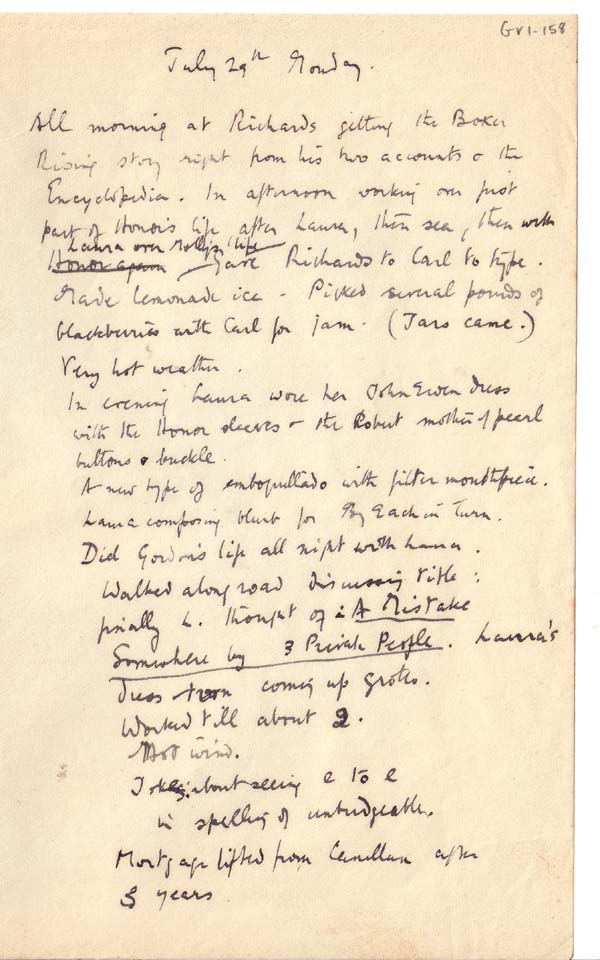 GV1-158
July 29th Monday.
All morning at Richards getting the Boxer
Rising story right from his two accounts & the
Encyclopedia. In afternoon working over first
part of Honor's life after Laura, then sea, then with
Laura over Molly's life
Honor again Gave Richards to Carl to type.
Made lemonade ice - Picked several pounds of
blackberries with Carl for jam. (Jars came.)
Very hot weather.
In evening Laura wore her John Ewen dress
with the Honor sleeves & the Robert mother of pearl
buttons & buckle.
A new type of emboquillado with filter mouthpiece.
Laura composing blurb for By Each in Turn.
Did Gordon's life all night with Laura.
Walked along road discussing title:
finally L. thought of: A Mistake
Somewhere by 3 Private People. Laura's
dress torn coming up grotes.
Worked till about 2.
Hot wind.
about seeing e to e
in spelling of unbudgeable.
Mortgage lifted from Canellun after
5 years